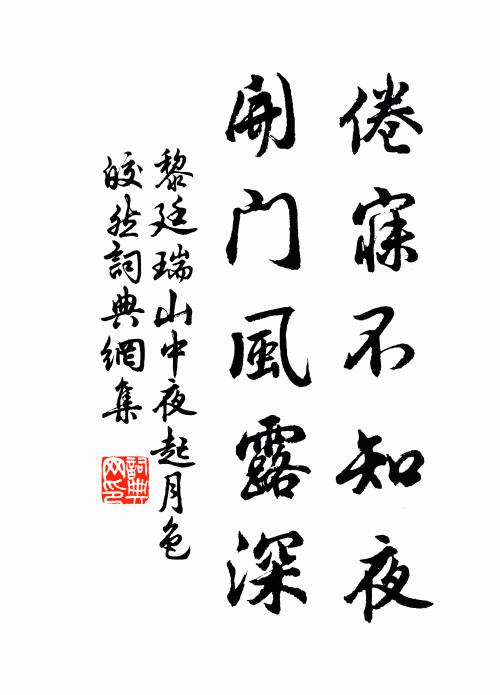 倦寐不知夜
開门風露深
黎廷瑞山中夜起月色
皎然詞典網集
詞典网印